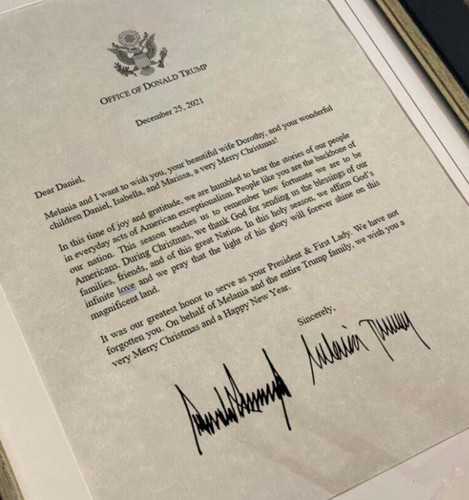 OFFICE OF DONALD TRUMP
December 25, 2021
Dear Daniel,
Melania and I want to wish you, your beautiful wife Dorothy, and your wonderful
children Daniel, Isabella, and Marissa, a very Merry Christmas!
In this time of joy and gratitude, we are humbled to hear the stories of our people
in everyday acts of American exceptionalism. People like you are the backbone of
our nation. This season teaches us to remember how fortunate we are to be
Americans. During Christmas, we thank God for sending us the blessings of our
families, friends, and of this great Nation. In this holy season, we affirm God's
infinite love and we pray that the light of his glory will forever shine on this
magnificent land.
It was our greatest honor to serve as your President & First Lady. We have not
forgotten you. On behalf of Melania and the entire Trump family, we wish you a
very Merry Christmas and a Happy New Year.
Sincerely,
Donald Trump Melania Trump